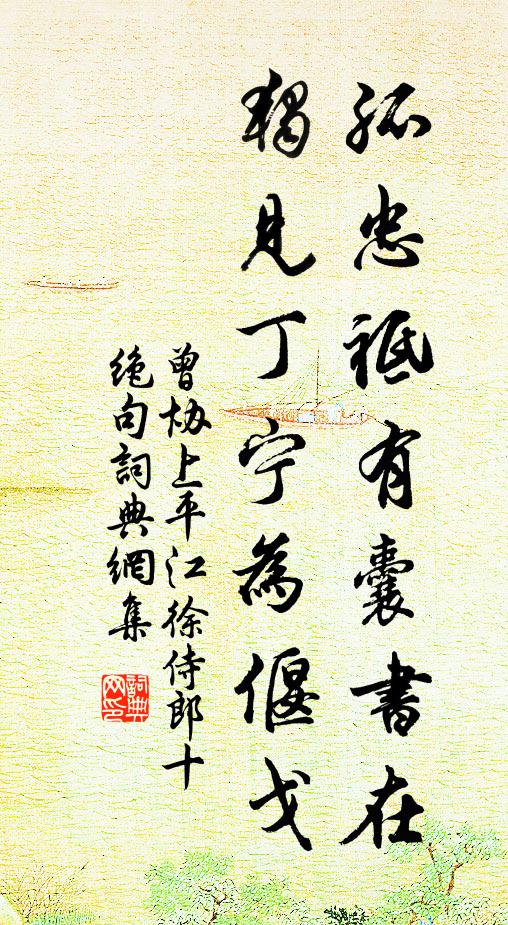 孤忠祗有囊書在
獨見丁宁為偃戈
曾協上平江徐侍郎十
絶句詞典網集
詞典
网印